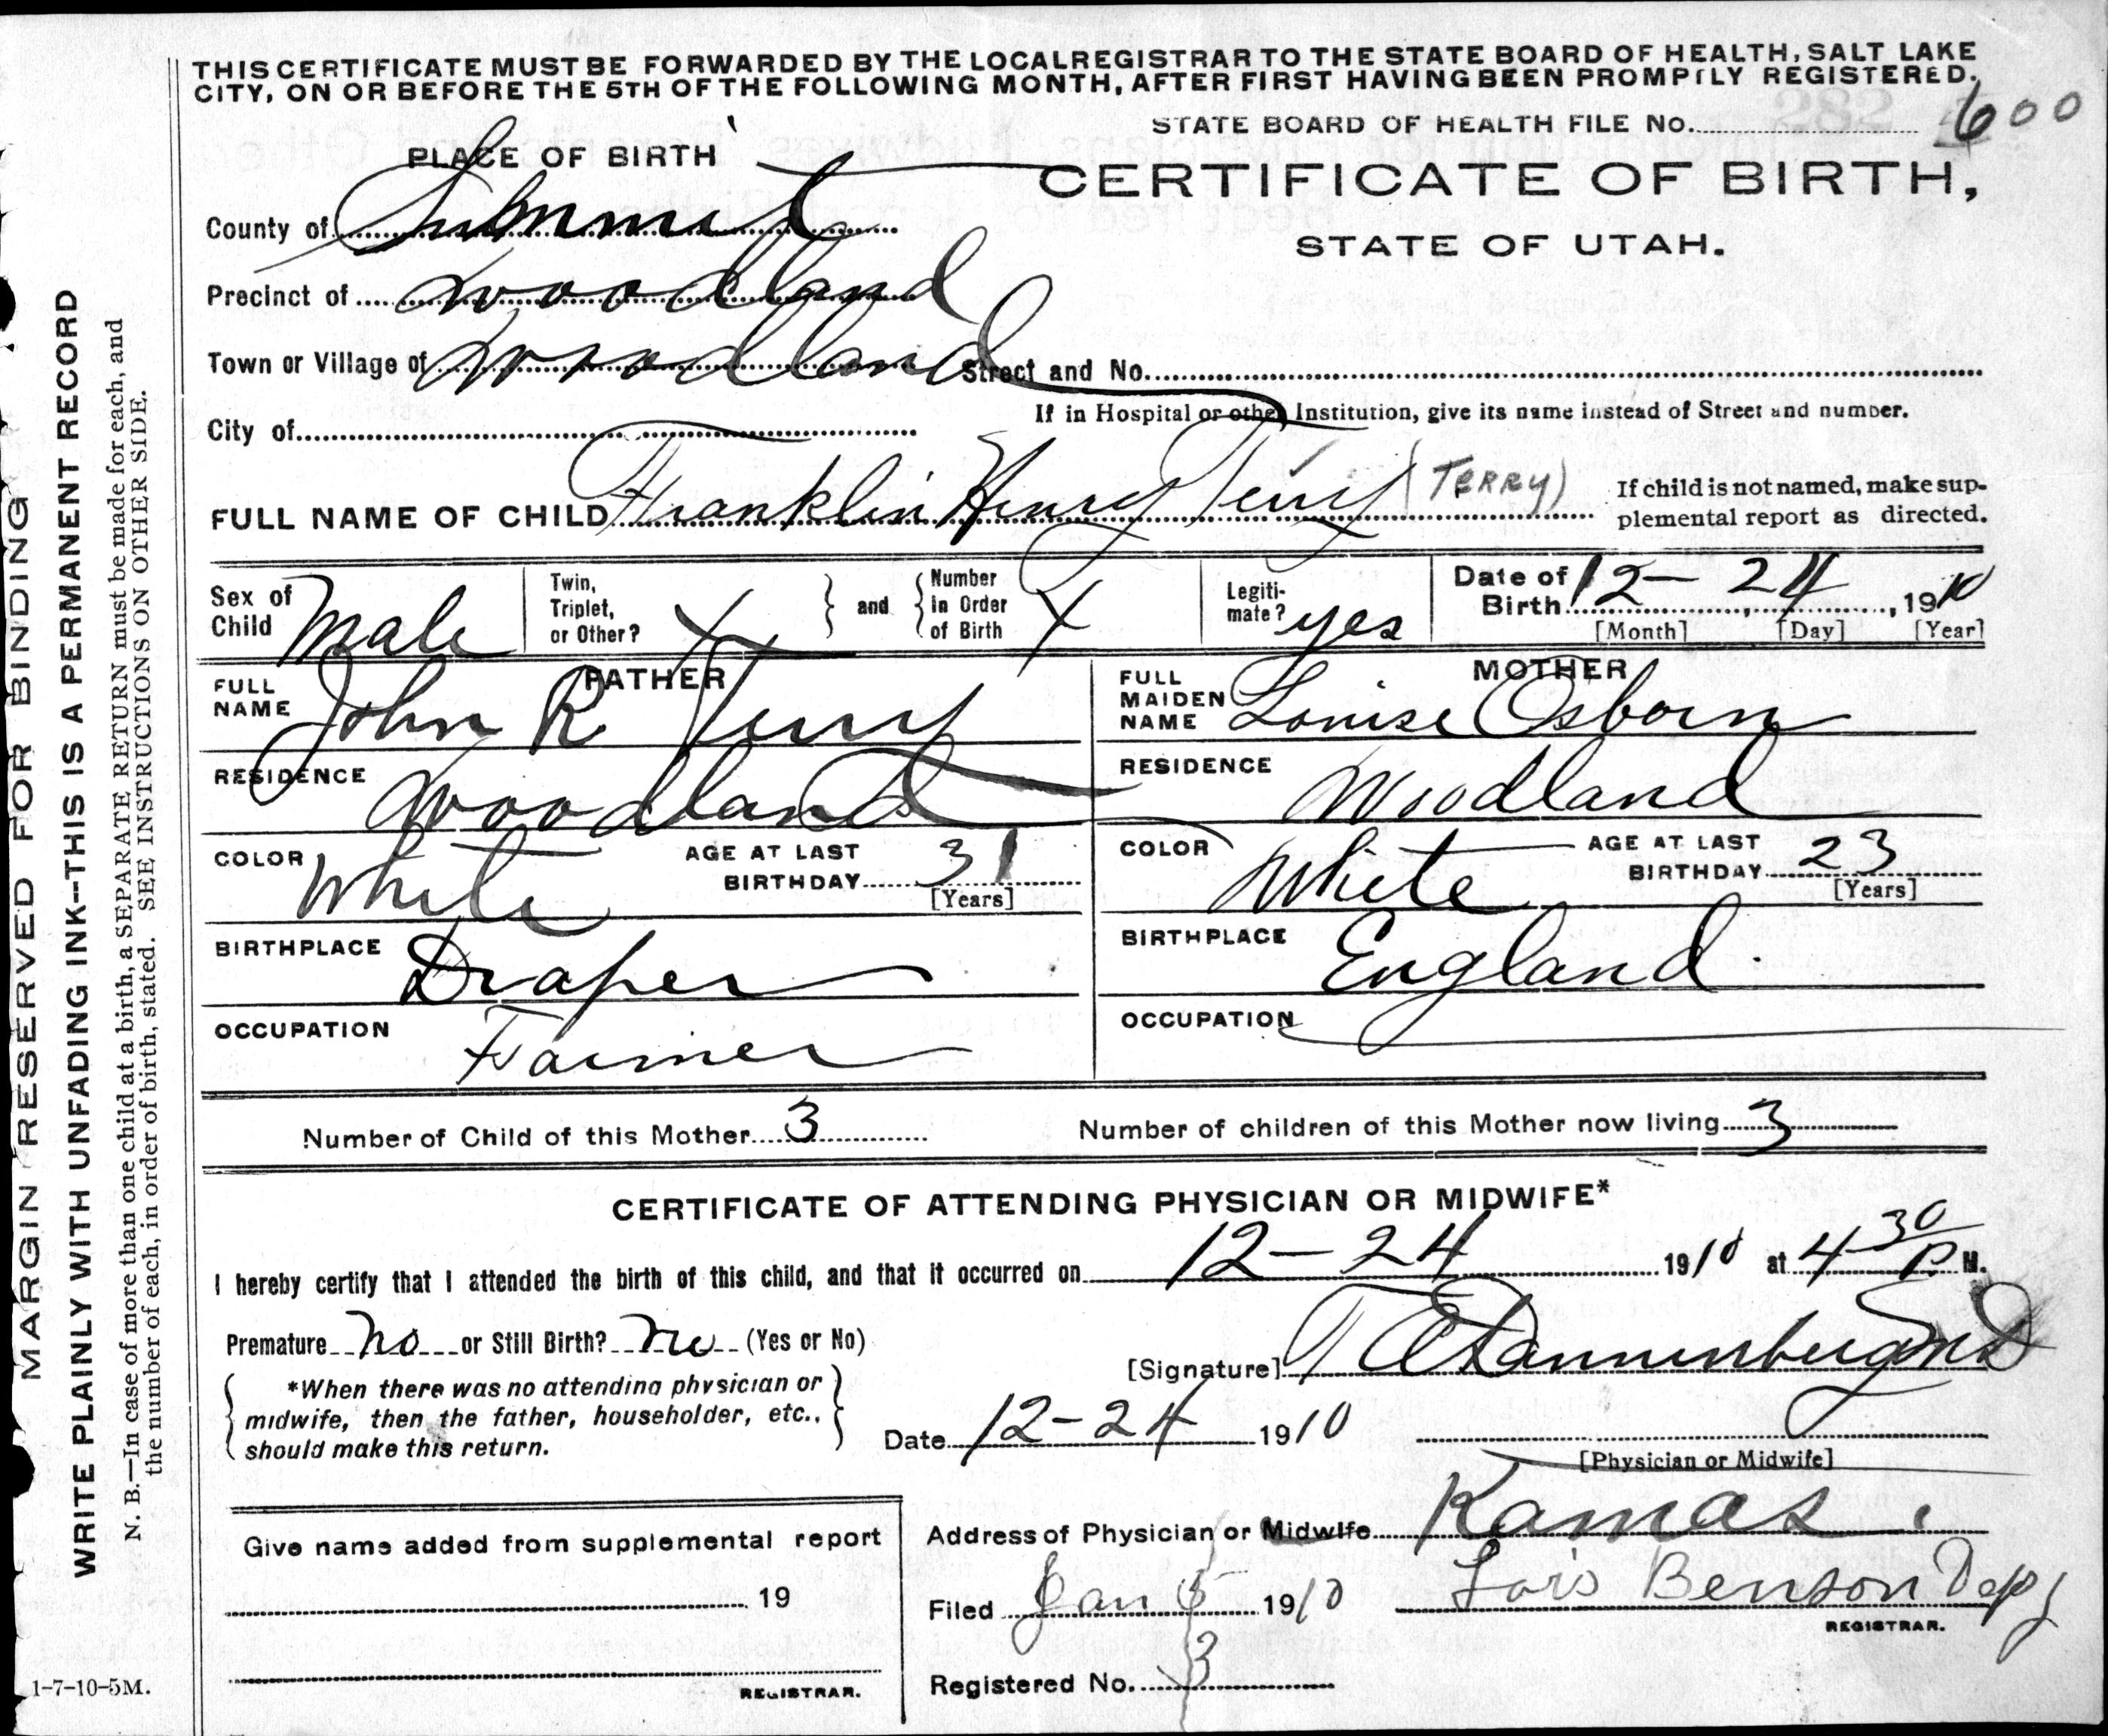 THIS CERTIFICATE MUST BE FORWARDED BY THE LOCAL REGISTRAR TO THE STATE BOARD OF HEALTH, SALT LAKE
CITY, ON OR BEFORE THE 5TH OF THE FOLLOWING MONTH, AFTER FIRST HAVING BEEN PROMPTLY REGISTERED.
STATE BOARD OF HEALTH FILE No. 600
PLACE OF BIRTH
CERTIFICATE OF BIRTH,
STATE OF UTAH.
County of Summit
Precinct of Woodland
Town or Village of Woodland Street and No.
If in Hospital or other Institution, give its name instead of Street and number.
City of
FULL NAME OF CHILD Franklin Henry Terry (TERRY)
If child is not named, make sup-
plemental report as directed.
Sex of Child Male
Twin, Triplet, or Other? X
and
Number in Order of Birth X
Legiti-mate? yes
Date of Birth 12 - 24, 1910
[Month] [Day] [Year]
FATHER
FULL NAME John R Terry
RESIDENCE Woodland
COLOR White AGE AT LAST BIRTHDAY 31
[Years]
BIRTHPLACE Draper
OCCUPATION Farmer
MOTHER
FULL MAIDEN NAME Louise Osborn
RESIDENCE Woodland
COLOR White AGE AT LAST BIRTHDAY 23
[Years]
BIRTHPLACE England
OCCUPATION
Number of Child of this Mother 3 Number of children of this Mother now living 3
CERTIFICATE OF ATTENDING PHYSICIAN OR MIDWIFE*
I hereby certify that I attended the birth of this child, and that it occurred on 12 - 24 1910 at 4 30 P. M.
Premature No or Still Birth? No (Yes or No)
[Signature] Dannenberg MD
*When there was no attending physician or
midwife, then the father, householder, etc.,
should make this return.
Date 12-24 1910
[Physician or Midwife]
Give name added from supplemental report
19
REGISTRAR.
Address of Physician or Midwife Kamas
Filed Jan 5 1910 Lois Benson Depy
REGISTRAR.
Registered No. 3
1-7-10-5M.
MARGIN RESERVED FOR BINDING
WRITE PLAINLY WITH UNFADING INK--THIS IS A PERMANENT RECORD
N. B.—In case of more than one child at a birth, a SEPARATE RETURN must be made for each, and
the number of each, in order of birth, stated. SEE INSTRUCTIONS ON OTHER SIDE.